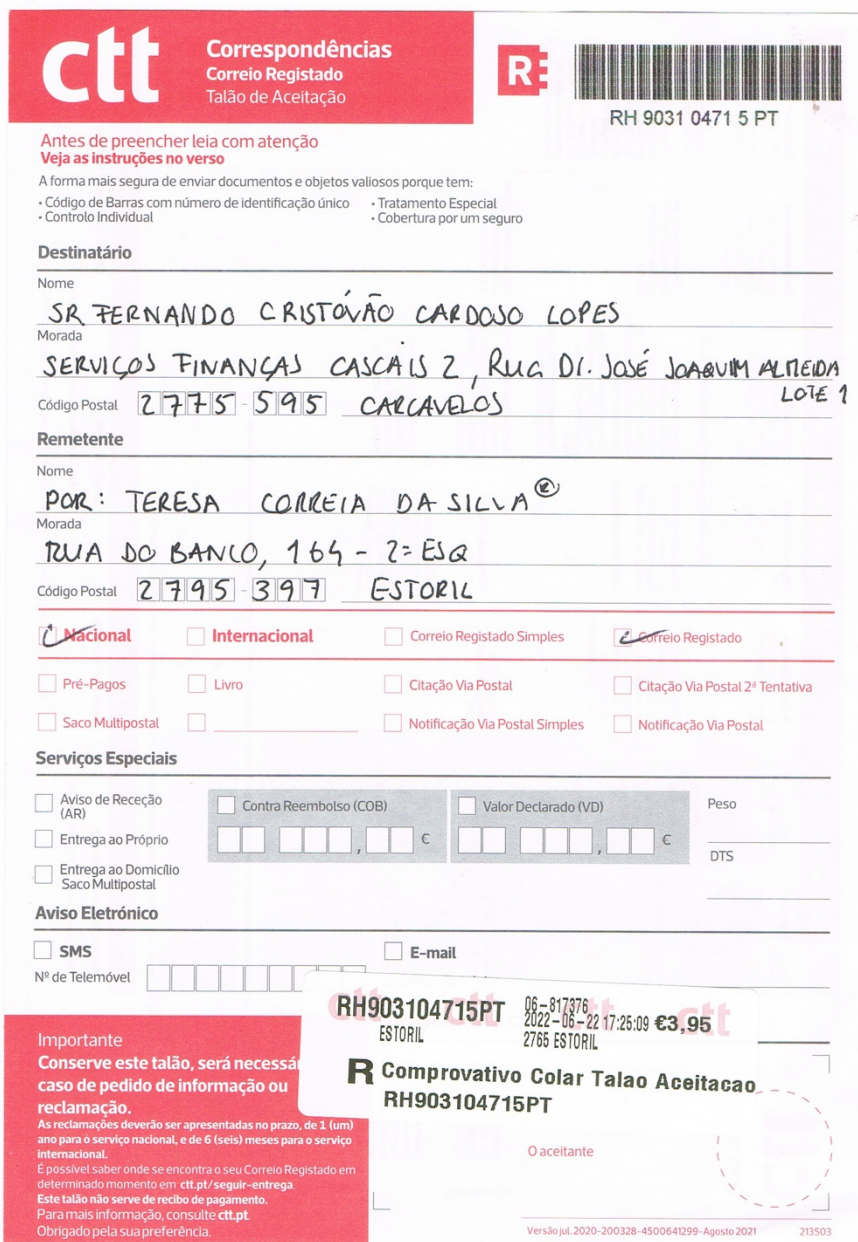 ctt
Correspondências
Correio Registado
Talão de Aceitação
R
RH 9031 0471 5 PT
Antes de preencher leia com atenção
Veja as instruções no verso
A forma mais segura de enviar documentos e objetos valiosos porque tem:
· Código de Barras com número de identificação único · Tratamento Especial
· Controlo Individual · Cobertura por um seguro
Destinatário
Nome
SR FERNANDO CRISTÓVÃO CARDOSO LOPES
Morada
SERVIÇOS FINANÇAS CASCAIS 2, RUA DR. JOSÉ JOAQUIM ALMEIDA
LOTE 1
Código Postal 2775-595 CARCAVELOS
Remetente
Nome
POR: TERESA CORREIA DA SILVA
Morada
RUA DO BANCO, 164 - 2º ESQ
Código Postal 2795-397 ESTORIL
Nacional Internacional Correio Registado Simples Correio Registado
Pré-Pagos Livro Citação Via Postal Citação Via Postal 2ª Tentativa
Saco Multipostal Notificação Via Postal Simples Notificação Via Postal
Serviços Especiais
Aviso de Receção (AR)
Contra Reembolso (COB) Valor Declarado (VD) Peso
Entrega ao Próprio , € , €
DTS
Entrega ao Domicílio
Saco Multipostal
Aviso Eletrónico
SMS E-mail
Nº de Telemóvel
RH903104715PT 06-817376
2022-06-22 17:25:09 €3,95
ESTORIL 2765 ESTORIL
R Comprovativo Colar Talao Aceitacao
RH903104715PT
Importante
Conserve este talão, será necessá
caso de pedido de informação ou
reclamação.
As reclamações deverão ser apresentadas no prazo, de 1 (um)
ano para o serviço nacional, e de 6 (seis) meses para o serviço
internacional.
É possível saber onde se encontra o seu Correio Registado em
determinado momento em ctt.pt/seguir-entrega
Este talão não serve de recibo de pagamento.
Para mais informação, consulte ctt.pt.
Obrigado pela sua preferência.
O aceitante
Versão jul. 2020-200328-4500641299-Agosto 2021 213503